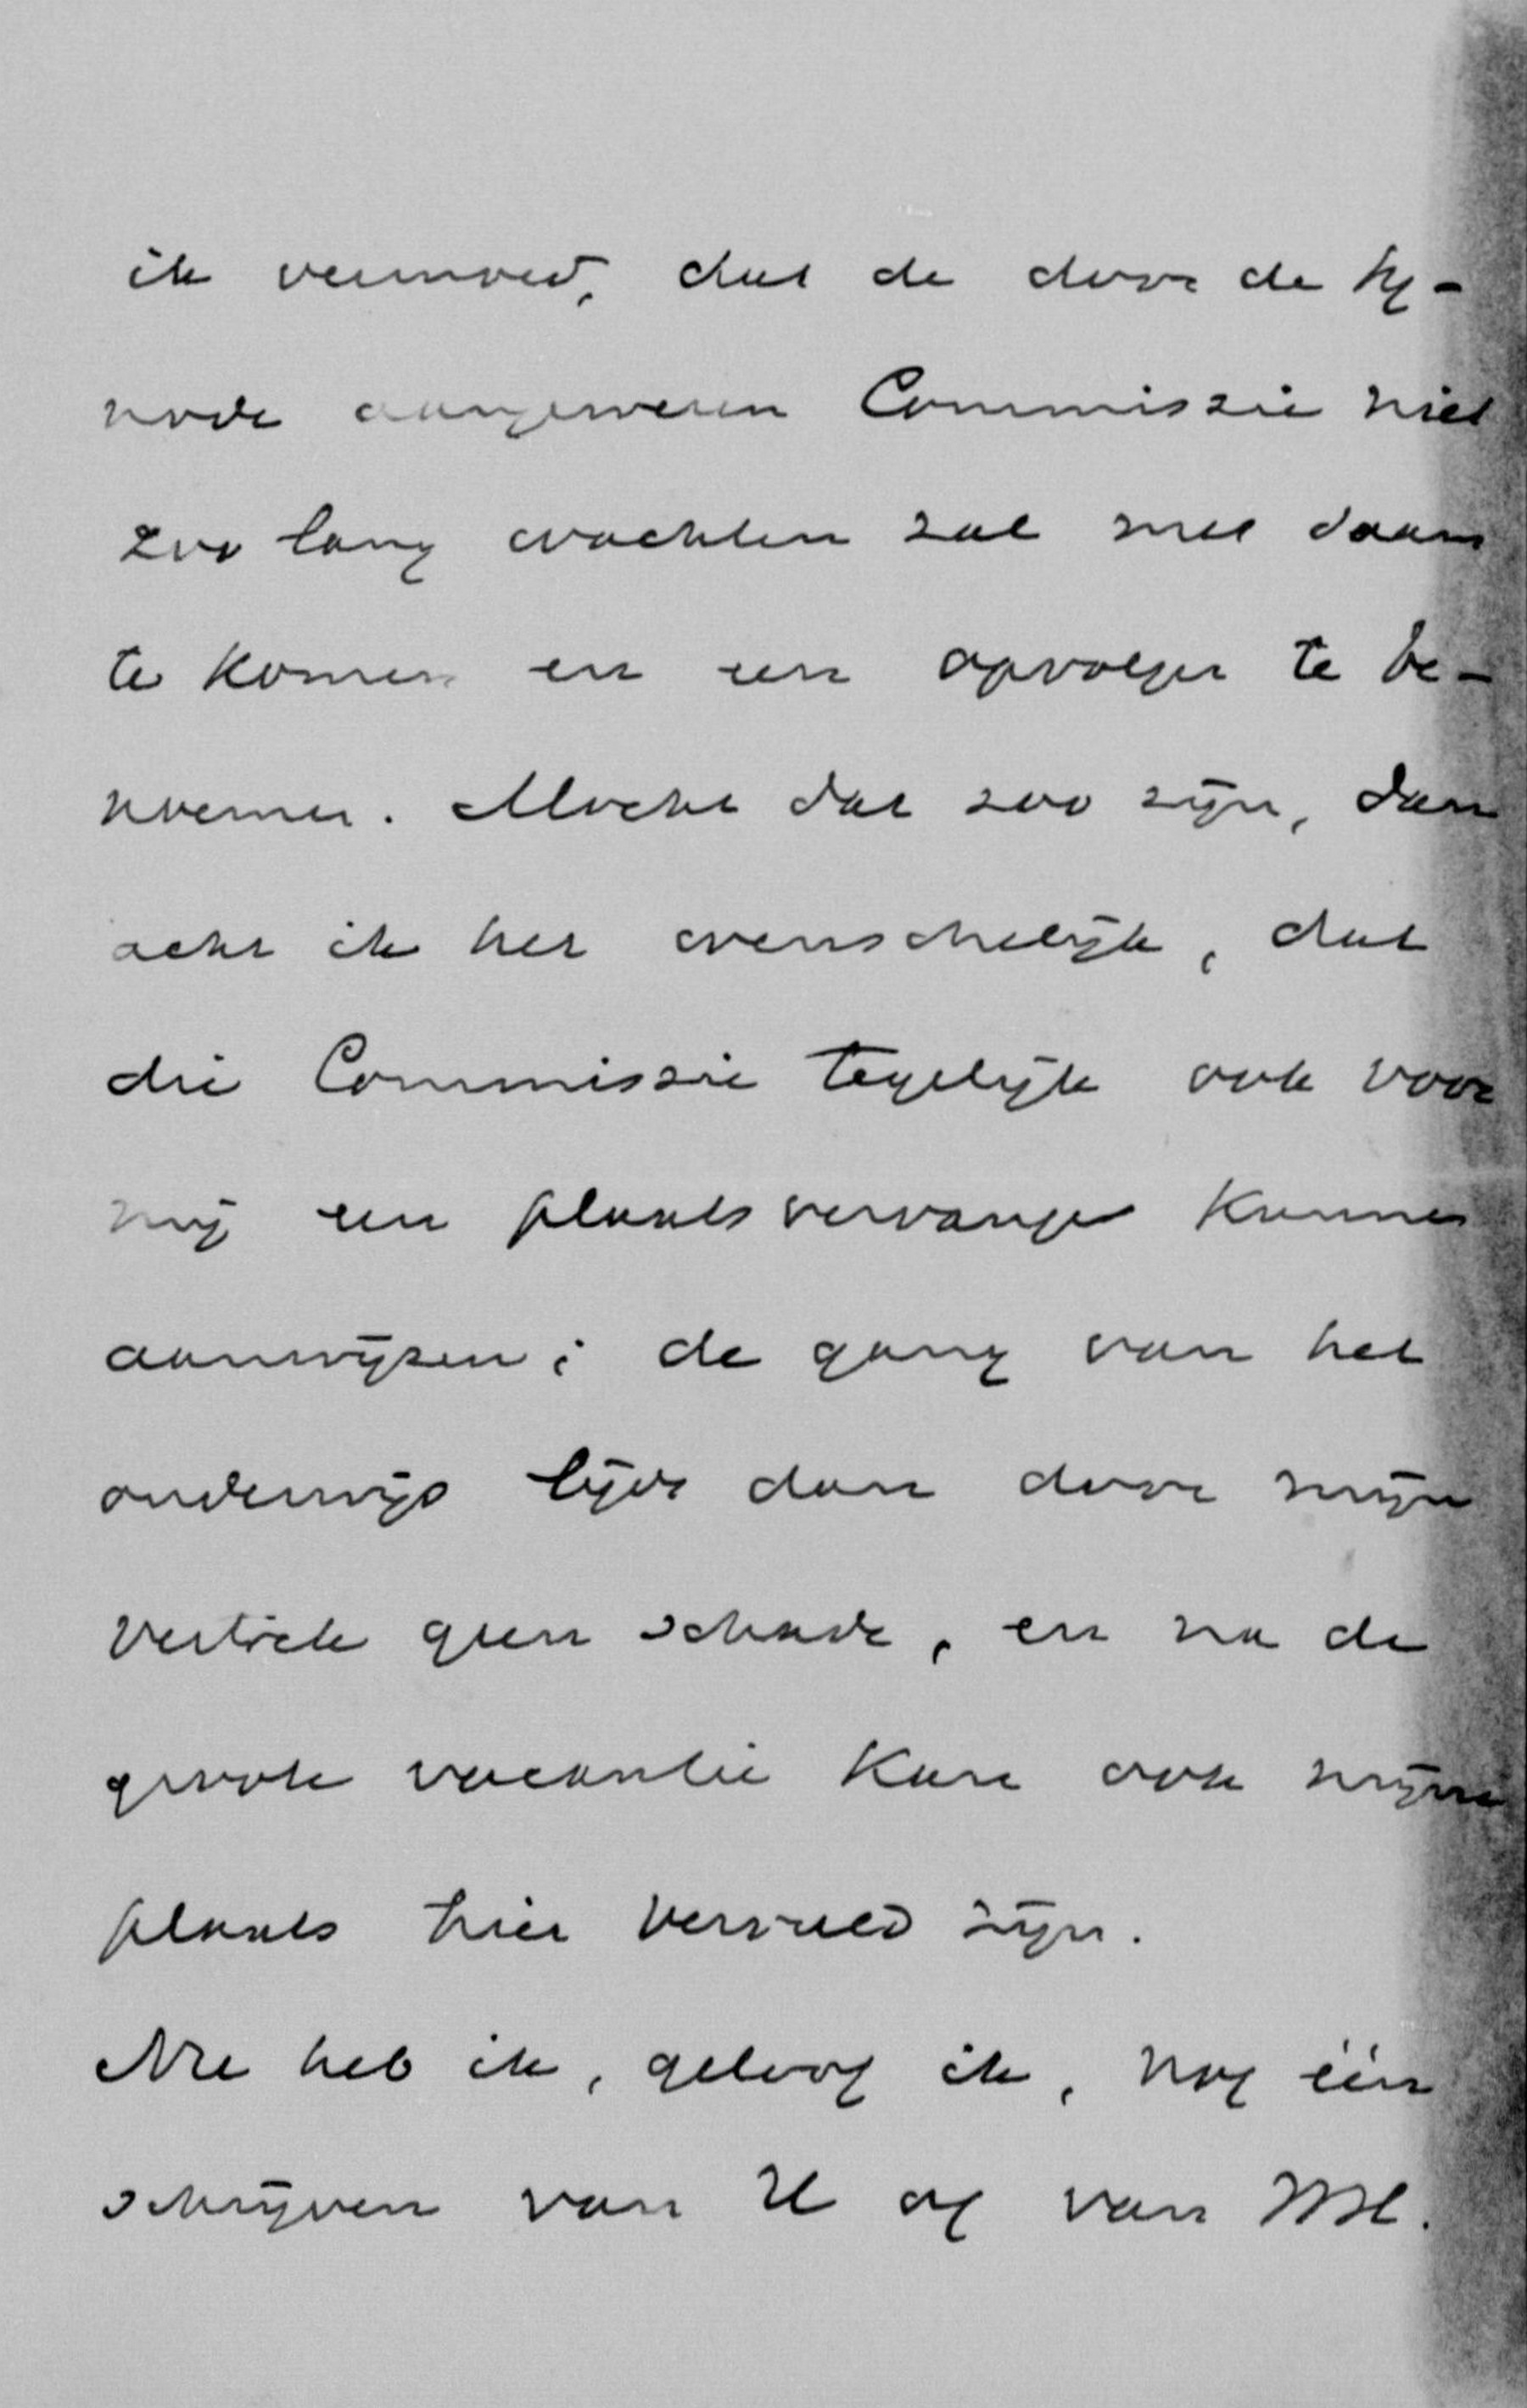 ik vermoed, dat de door de Sy-
node aangewezen Commissie niet
zoo lang wachten zal met saam
te komen en een opvolger te be-
noemen. Mocht dat zoo zijn, dan
acht ik het wenschelijk, dat
die Commissie tegelijk ook voor
mij een plaatsvervanger kunne
aanwijzen; de gang van het
onderwijs lijdt dan door mijn
vertrek geen schade, en na de
groote vacantie kan ook mijne
plaats hier vervuld zijn.
Nu heb ik, geloof ik, nog één
schrijven van U of van